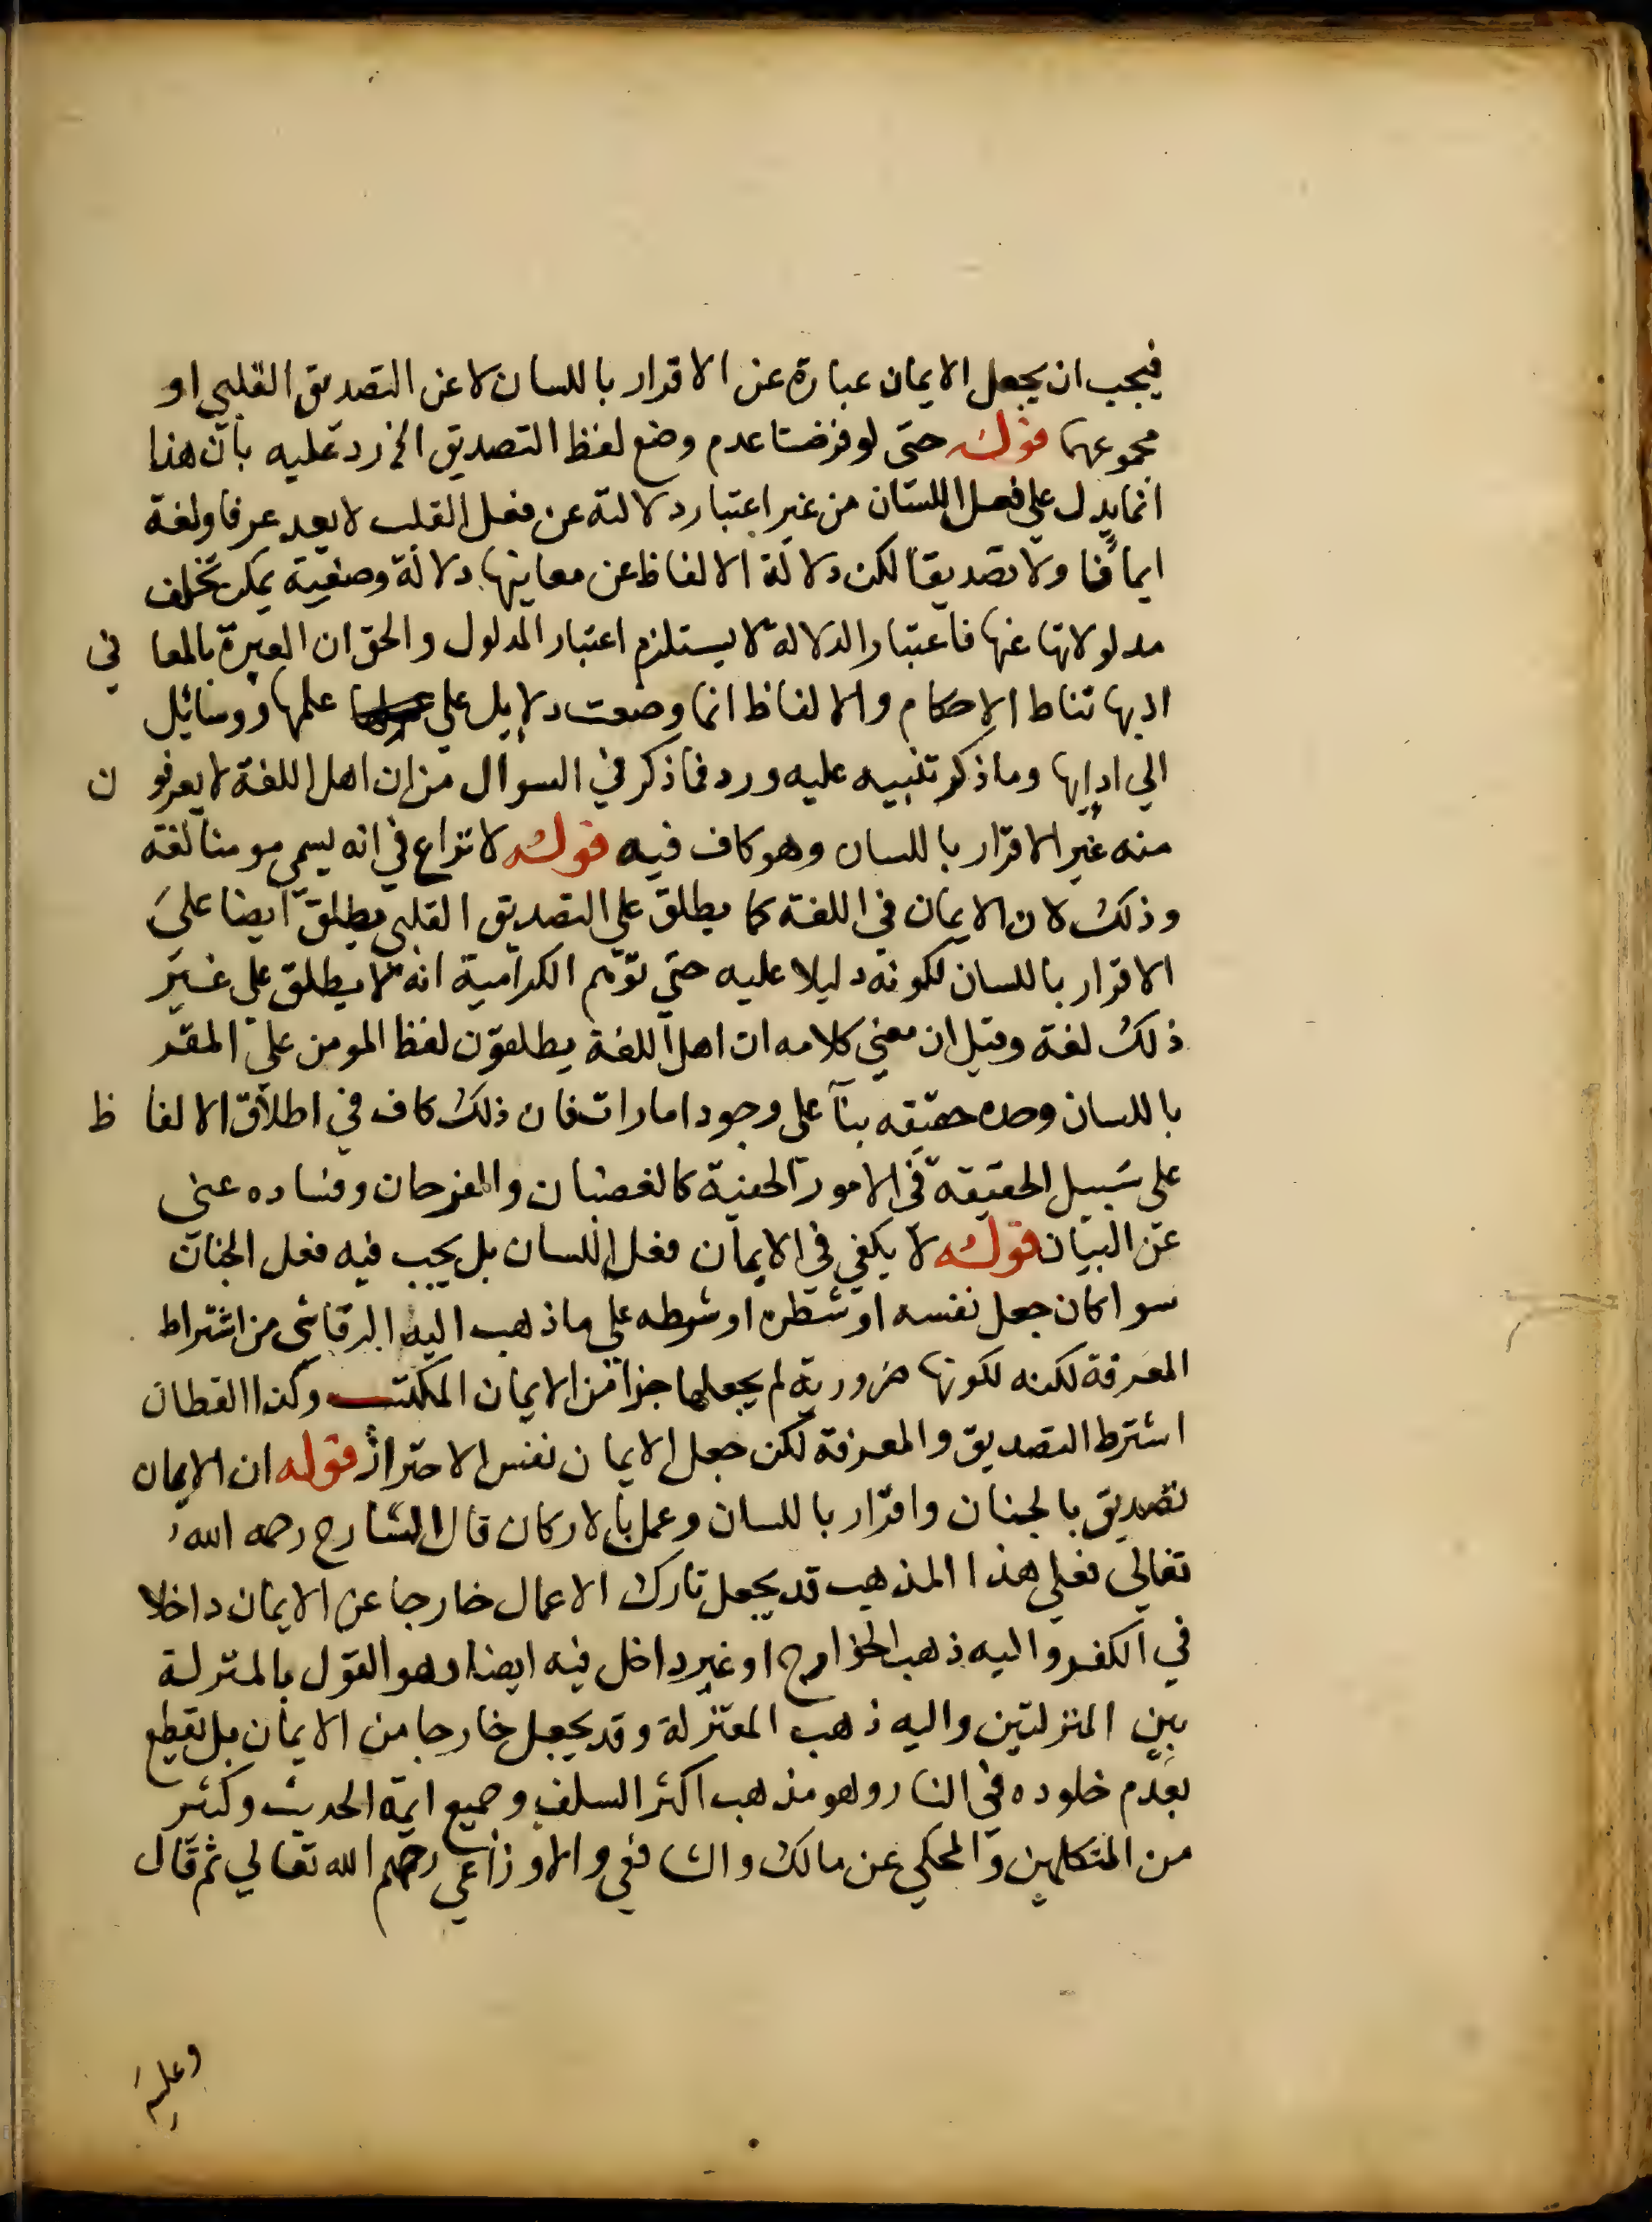 فيجب ان يجعل الايمان عبارة عن الاقرار باللسان لا عن التصديق القلبي او
مجموعهما قوله حتى لو فرضنا عدم وضع لفظ التصديق الخ رد عليه بان هذا
انما يدل على فعل اللسان من غير اعتبار دلالته عن فعل القلب لا يعد عرفا ولغة
ايمانا ولا تصديقا لكن دلالة الالفاظ عن معاينها دلالة وضعية يمكن تخلف
مدلولاتها عنها فاعتبار الدلالة لا يستلزم اعتبار المدلول والحق ان العبرة بالمعاني
اذ بها تناط الاحكام والالفاظ انما وضعت دلايل على علمها ووسائل
الي ادايها وما ذكر تنبيه عليه ورد فماذكر في السوال من ان اهل اللغة لا يعرفون
منه غير الاقرار باللسان وهو كاف فيه قوله لا نزاع في انه يسمى مومنا لغة
وذلك لان الايمان في اللغة كما يطلق على التصديق القلبي يطلق ايضا على
الاقرار باللسان لكونه دليلا عليه حتي توهم الكرامية انه لا يطلق على غير
ذلك لغة وقيل ان معني كلامه ان اهل اللغة يطلقون لفظ المومن على المقر
باللسان وحده حقيقه بنآ على وجود امارات فان ذلك كاف في اطلاق الالفاظ
على سبيل الحقيقة في الامور الخفية كالغضبان والفرحان وفساده غني
عن البيان قوله لا يكفي في الايمان فعل اللسان بل يجب فيه فعل الجنان
سوا كان جعل نفسه او شطره او شرطه على ما ذهب اليه الرقاشي من اشتراط
المعرفة لكنه لكونها ضرورية لم يجعلها جزا من الايمان المكتسب وكذا القطان
اشترط التصديق والمعرفة لكن جعل الايمان نفس الاحتراز قوله ان الايمان
تصديق بالجنان واقرار باللسان وعمل بالاركان قال الشارح رحمه الله
تعالي فعلى هذا المذهب قد يجعل تارك الاعمال خارجا عن الايمان داخلا
في الكفر واليه ذهب الخوارج او غير داخل فيه ايضا وهو القول بالمنزلة
بين المنزلتين واليه ذهب المعتزلة وقد يجعل خارجا من الايمان بل يقطع
بعدم خلوده في النار وهو مذهب اكثر السلف وجميع ايمة الحديث وكثير
من المتكلمين والمحكي عن مالك والشافعي والاوزاعي رحمهم الله تعالي ثم قال
وعليه